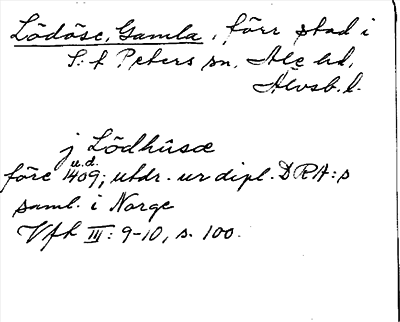 Lödöse, Gamla, förr stad i
S:t Peters sn, Ale hd,
Älvsb. l.
j Lödhūsæ
u.d.
före 1409; utdr. ur dipl. DRA:s
saml. i Norge
Vfh III: 9-10, s. 100.